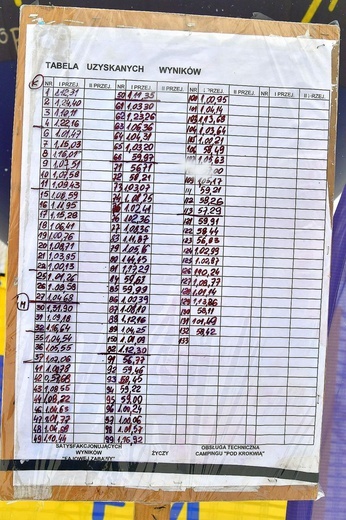 TABELA UZYSKANYCH WYNIKÓW
NR I PRZEJ. II PRZEJ. NR I PRZEJ. II PRZEJ. NR I PRZEJ. II PRZEJ. NR I PRZEJ. II PRZEJ.
K
1 1.12,31 50 1.11,35 101 1.00,95
2 1.24,40 61 1.03,30 1.04,14
3 1.10,11 62 1.23,26 103 1.13,68
4 1.22,16 63 1.06,36 104 1.03,64
6 1.01,47 64 1.04,31 1.00,21
7 1.15,03 65 1.03,20 106 58,49
8 1.16,01 66 59,97
9 1.07,51 71 56,71
10 1.07,58 72 58,21 1.05,17
11 1.09,43 73 1.03,07 111 59,21
15 1.08,59 74 1.01,75 112 58,26
16 1.11,95 1.02,41 113 57,29
17 1.15,28 76 1.02,36 121 59,91
18 1.06,41 77 1.08,36 122 58,44
19 1.00,76 78 1.11,87 123 56,83
20 1.08,71 79 124 1.02,99
21 1.03,85 80 1.14,15 125 1.00,87
1.00,13 81 1.17,29 126 1.10,24
1.01,26 84 59,63 127 1.08,77
26 1.08,58 85 59,99 128 1.01,14
M
27 1.04,68 86 1.00,39 129 1.13,86
30 1.31,90 87 1.08,10 130 58,11
1.09,18 88 1.12,16 131 1.01,49
32 1.16,64 89 1.04,25 132 58,42
35 1.04,54 1.01,09 133
36 1.05,55 1.12,30
37 1.02,06 91 56,77
41 1.08,78 92 59,46
42 93 58,45
43 1.08,55 94 59,22
44 1.08,22 95 59,00
46 1.04,63 96 1.00,24
47 2.01,77 97 1.00,06
48 98 1.01,57
49 1.10,44 99 1.16,92
SATYSFAKCJONUJĄCYCH
WYNIKÓW
"FAJOWEJ ZABAWY"
ŻYCZY
OBSŁUGA TECHNICZNA
CAMPINGU "POD KROKWIĄ"